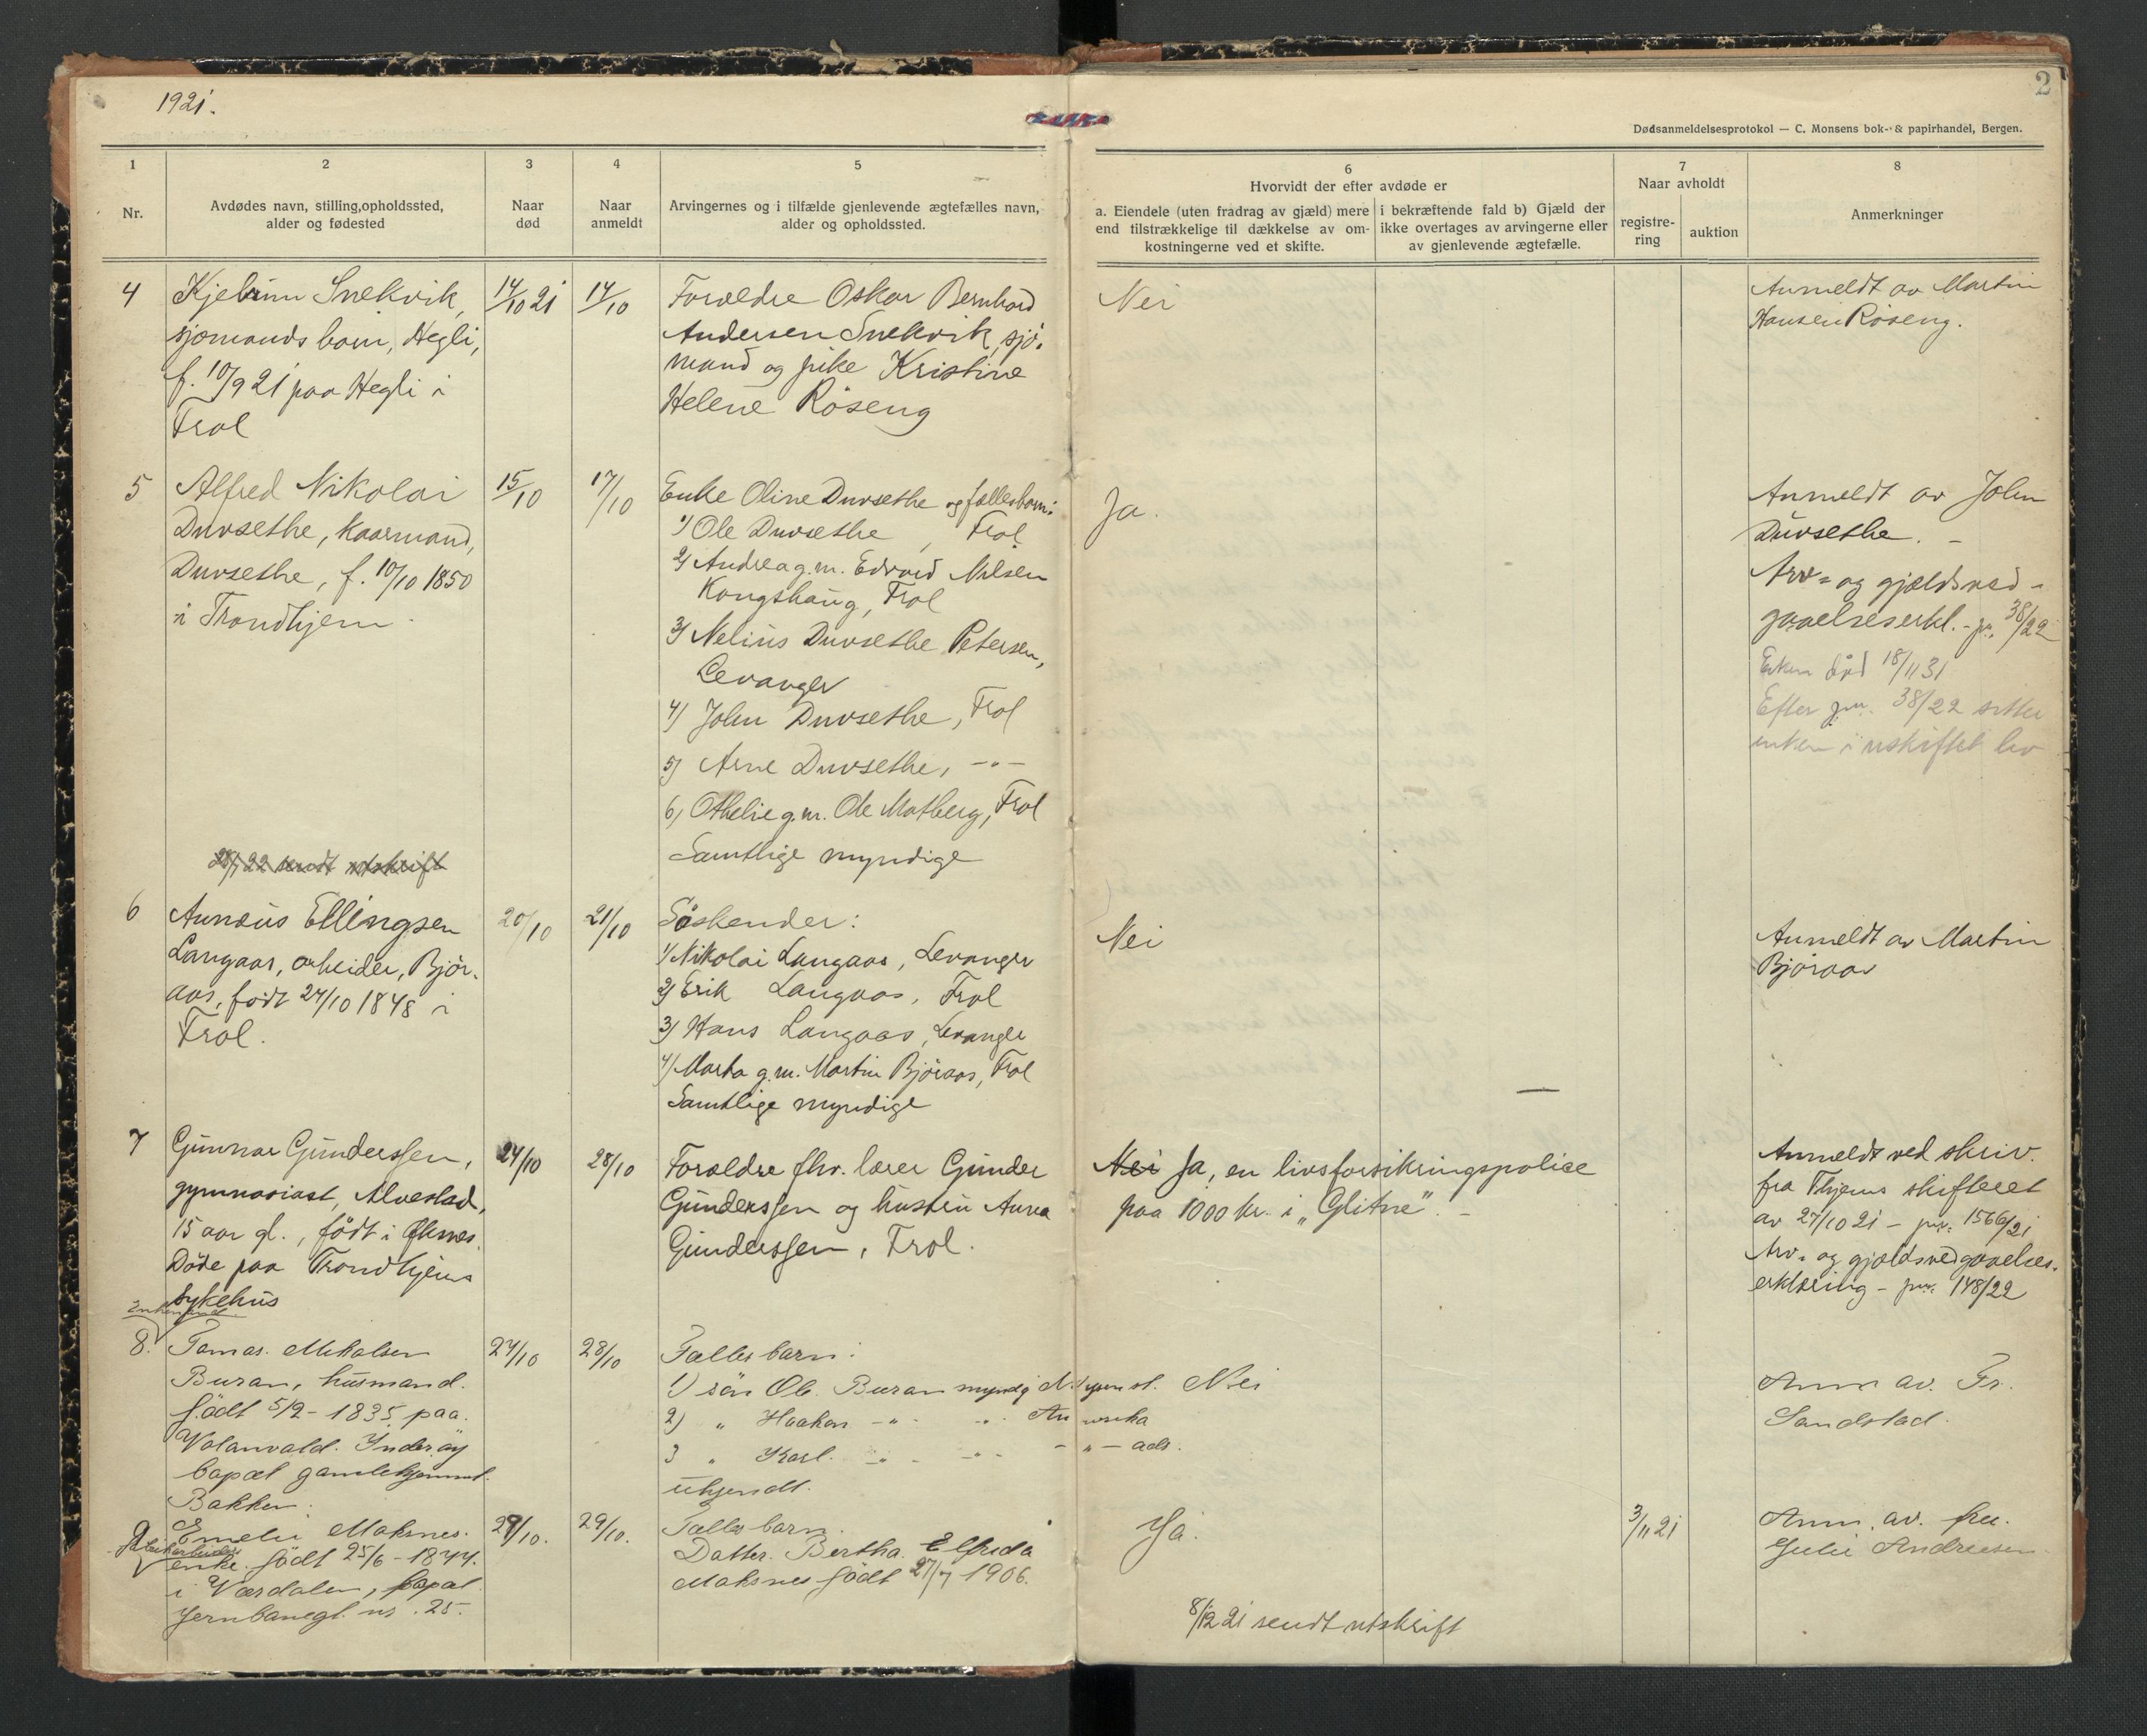 1921.
2
Dødsanmeldelsesprotokol — C. Monsens bok- & papirhandel, Bergen.
1
2
3
4
5
6
7
8
Nr.
Avdødes navn, stilling, opholdssted,
alder og fødested
Naar
død
Naar
anmeldt
Arvingernes og i tilfælde gjenlevende ægtefælles navn,
alder og opholdssted.
Hvorvidt der efter avdøde er
a. Eiendele (uten fradrag av gjæld) mere
end tilstrækkelige til dækkelse av om-
kostningerne ved et skifte.
i bekræftende fald b) Gjæld der
ikke overtages av arvingerne eller
av gjenlevende ægtefælle.
Naar avholdt
registre-
ring
auktion
Anmerkninger
4
Snekvik,
sjømands barn, Hegli,
f. 10/9 21 paa Hegli i
Frol
14/10 21
14/10
Forældre Oskar Bernhard
Andersen Snekvik, sjø-
mand og pike Kristine
Helene Röseng
Nei
Anmeldt av Martin
Hansen Röseng.
5
Alfred Nikolai
Duvsethe, kaarmand,
Duvsethe, f. 10/10 1850
i Trondhjem
15/10
17/10
Enke Oline Duvsethe og fællesbarn:
1) Ole Duvsethe, Frol
2) Andrea g.m. Edvard Nilsen
Kongshaug, Frol
3) Nelius Duvsethe Petersen,
Levanger
4) John Duvsethe, Frol
5) Arne Duvsethe, -"-
6) Othelie g.m. Ole Matberg, Frol
Samtlige myndige
22 sendt utskrift
Ja.
Anmeldt av John
Duvsethe. -
Arv- og gjældsved-
gaaelseserkl. - jr. 38/22
Enken død 18/11 31
Efter jnr. 38/22 sitter
enken i uskiftet bo
6
Ellingsen
Langaas, arbeider, Björ-
aas, født 24/10 1848 i
Frol.
20/10
21/10
Søskender:
1) Nikolai Langaas, Levanger
2) Erik Langaas, Frol
3) Hans Langaas, Levanger
4) Marta g.m. Martin Björaas, Frol
Samtlige myndige
Nei
Anmeldt av Martin
Björaas
7
Gunnar Gunderssen,
gymnasiast, Alvestad,
15 aar gl., født i
Døde paa Trondhjems
sykehus
24/10
28/10
Forældre fhv. lærer Gunder
Gunderssen og hustru Anna
Gunderssen, Frol.
Nei Ja, en livsforsikringspolice
paa 1000 kr. i "Glitne". -
Anmeldt ved skriv.
fra Thjems skifteret
av 27/10 21 - jnr. 1566/21
Arv- og gjældsvedgaaelses-
erklæring - jnr. 148/22
Enkemand
8.
Tomas Mikalsen
Buran, husmand.
født 5/2 - 1835 paa
Inderøy
bopæl gamlehjemmet
Bakken.
24/10
28/10
Fælles barn:
1) søn Ole Buran myndig
2) " Haakon -"- -"- Amerika
3 " Karl. -"- -"- -"- ads.
ukjendt.
Nei
Anm av. Fr.
Sandstad.
9
Emelie Maksnes.
enke. født 25/6 - 1844.
i Værdalen, bopæl
Jernbanegt. nr. 25.
29/10.
29/10.
Fælles barn
Datter. Bertha Elfrida
Maksnes født 27/7 1906.
Ja.
3/11 21
Anm. av. fru.
Julie Andreesen
8/12 21 sendt utskrift